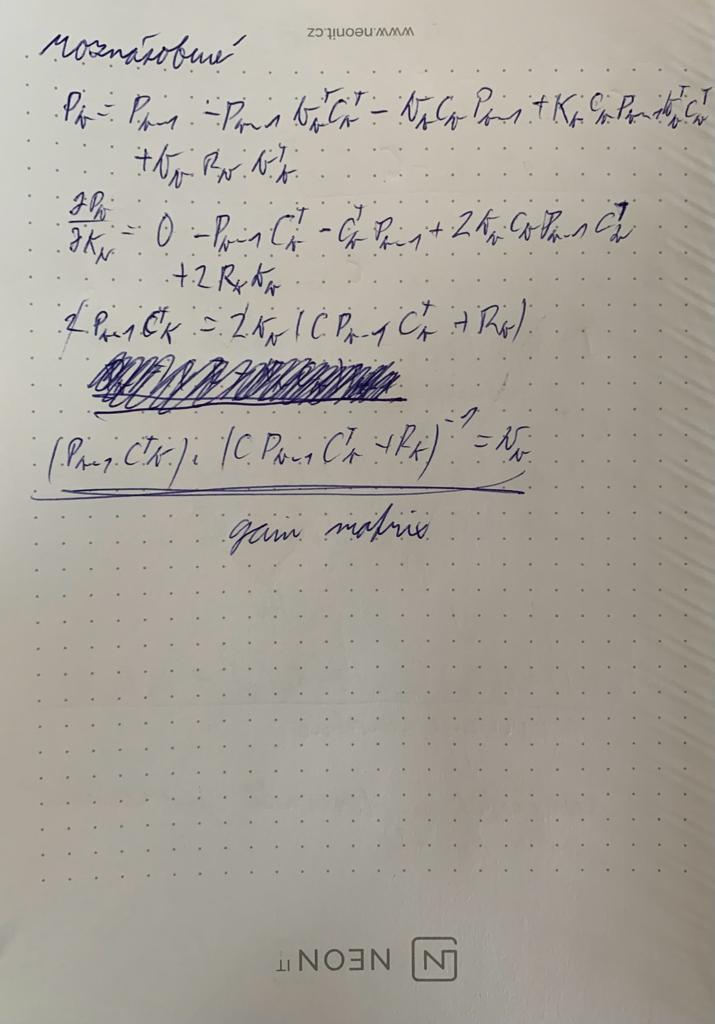 www.neonit.cz
roznásobení
P_k = P_{k-1} - P_{k-1} K_k^T C_k^T - K_k C_k P_{k-1} + K_k C_k P_{k-1} K_k^T C_k^T
+ K_k R_k K_k^T
∂P_k/∂K_k = 0 - P_{k-1} C_k^T - C_k^T P_{k-1} + 2 K_k C_k P_{k-1} C_k^T
+ 2 R_k K_k
2 P_{k-1} C_k^T = 2 K_k (C P_{k-1} C_k^T + R_k)
(P_{k-1} C_k^T) . (C P_{k-1} C_k^T + R_k)^{-1} = K_k
gain matrix
NEON IT